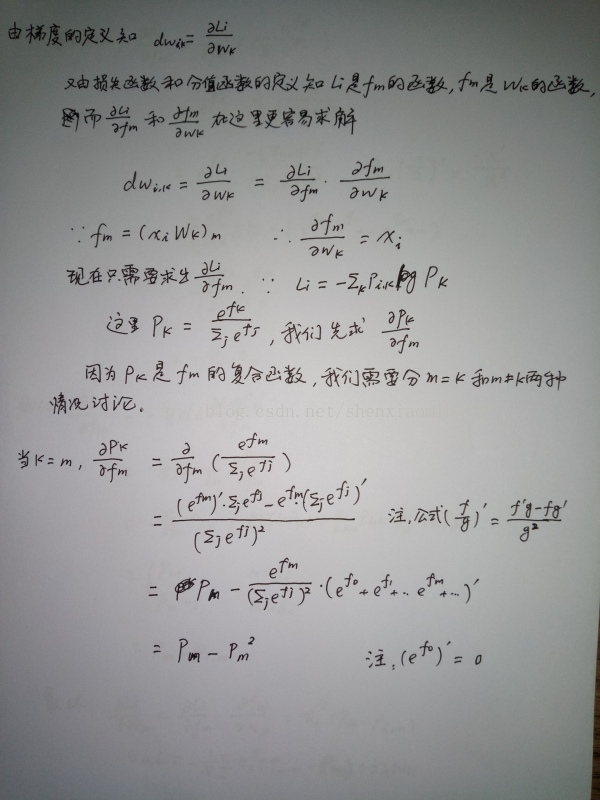 由梯度的定义知 dw_{i,k} = ∂Li/∂W_K
又由损失函数和分值函数的定义知 Li是f_m的函数, f_m是W_K的函数,
而 ∂Li/∂f_m 和 ∂f_m/∂W_K 在这里更容易求解
dw_{i,k} = ∂Li/∂W_K = ∂Li/∂f_m · ∂f_m/∂W_K
∵ f_m = (x_i W_K)_m ∴ ∂f_m/∂W_K = x_i
现在只需要求出 ∂Li/∂f_m. ∵ Li = -Σ_K P_{i,k} log P_K
这里 P_K = e^{f_K}/Σ_j e^{f_j}, 我们先求 ∂P_K/∂f_m
因为P_K是f_m的复合函数, 我们需要分 m=K 和 m≠K两种
情况讨论。
blog.csdn.net/shenxiaom
当K=m, ∂P_K/∂f_m = ∂/∂f_m (e^{f_m}/Σ_j e^{f_j})
= ((e^{f_m})'·Σ_j e^{f_j} - e^{f_m}·(Σ_j e^{f_j})')/(Σ_j e^{f_j})² 注,公式(f/g)' = (f'g-fg')/g²
= P_m - e^{f_m}/(Σ_j e^{f_j})² ·(e^{f_0}+e^{f_1}+..e^{f_m}+...)'
= P_m - P_m² 注,(e^{f_0})' = 0